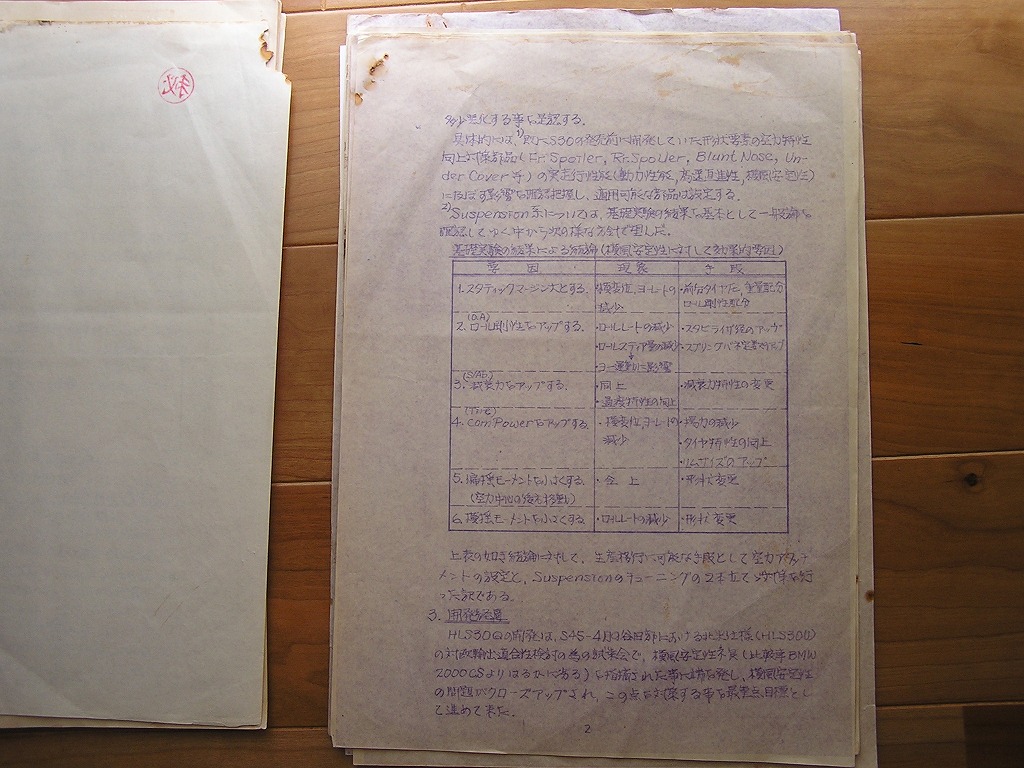 秘
多少悪化する事を是認する。
具体的には、1)既にS30の発売前に開発していた形状要素の空力特性
向上対策部品(Fr.Spoiler, Rr.Spoiler, Blunt Nose, Un-
der Cover等)の実走行性能(動力性能,高速直進性,横風安定性)
に及ぼす影響を確認把握し、適用可能な部品を設定する。
2)Suspension系については、基礎実験の結果を基本として一般論を
確認してゆく中から次の様な方針で望んだ。
基礎実験の結果による結論(横風安定性に対して効果的要因)
要因 現象 手段
1.スタティックマージン大とする。 ・横変位,ヨーレートの減少 ・前後タイヤ圧,重量配分 ロール剛性配分
2.ロール剛性をアップする。 ・ロールレートの減少 ・ロールステア量の減少 ヨー運動に影響 ・スタビライザ径のアップ ・スプリングバネ定数アップ
(S/Ab.)
3.減衰力をアップする。 ・同上 ・過度特性の向上 ・減衰力特性の変更
4.Corn.Powerをアップする。 ・横変位,ヨーレートの減少 ・揚力の減少 ・タイヤ特性の向上 ・リムサイズのアップ
5.偏揺モーメントを小さくする。 (空力中心の後方移動) ・仝上 ・形状変更
6.横揺モーメントを小さくする。 ・ロールレートの減少 ・形状変更
上表の如き結論に対して、生産移行に可能な手段として空力アタッチ
メントの設定と、Suspensionのチューニングの2本立てで作業を行
った訳である。
3. 開発経過
HLS30Qの開発は、S45-4月の谷田部における北米仕様(HLS30U)
の対欧輸出適合性検討の為の試乗会で、横風安定性不良(比較車BMW
2000CSよりはるかに劣る)を指摘された事に端を発し、横風安定性
の問題がクローズアップされ、この点を対策する事を最重点目標とし
て進めて来た。
2